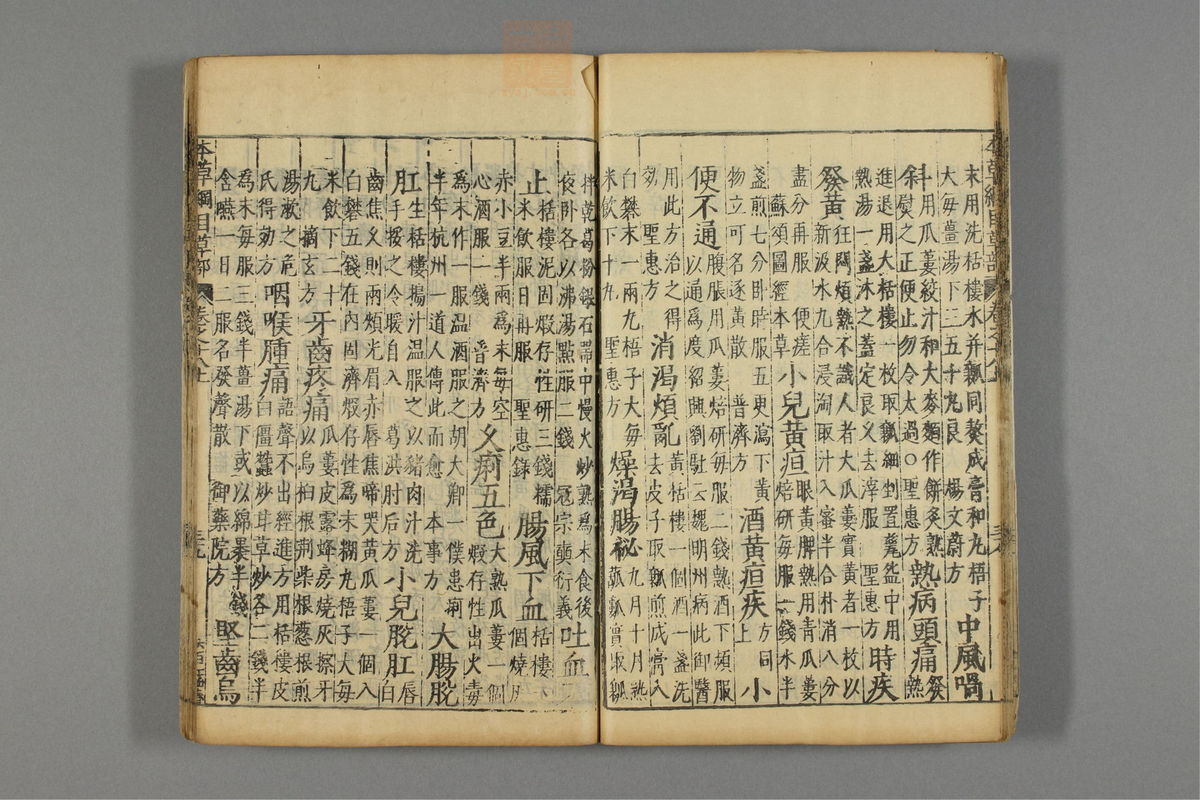 本草綱目草部
末用洗栝樓水并瓤同熬成膏和丸梧子
大每薑湯下三五十丸良 楊文蔚方
中風喎
斜
用瓜蔞絞汁和大麥麵作餅炙熟
熨之正便止勿令太過○聖惠方
熱病頭痛
發
熱
進退用大栝樓一枚取瓤細剉置甆盌中用
熱湯一盞沃之蓋定良久去滓服 聖惠方
時疾
發黃
狂悶煩熱不識人者大瓜蔞實黃者一枚以
新汲水九合浸淘取汁入蜜半合朴消八分
盡分再服便瘥
蘇頌圖經本草
小兒黃疸
眼黃脾熱用青瓜蔞
焙研每服一錢水半
盞煎七分臥時服五更瀉下黃
物立可名逐黃散 普濟方
酒黃疸疾
方同
上
小
便不通
腹脹用瓜蔞焙研每服二錢熱酒下頻服
以通爲度紹興劉駐云魏明州病此御醫
用此方治之得
効 聖惠方
消渴煩亂
黃栝樓一個酒一盞洗
去皮子取瓤煎成膏入
白礬末一兩丸梧子大每
米飲下十丸 聖惠方
燥渴腸祕
九月十月熟
瓜蔞實取瓤
拌乾葛粉銀石器中慢火炒熟爲末食後
夜臥各以沸湯點服二錢 寇宗奭衍義
吐血
不
止
栝樓泥固煅存性研三錢糯
米飲服日再服 聖惠錄
腸風下血
栝樓一
個燒灰
赤小豆半兩爲末每空
心酒服一錢 普濟方
久痢五色
大熟瓜蔞一個
煅存性出火毒
爲末作一服溫酒服之胡大卿一僕患痢
半年杭州一道人傳此而愈 本事方
大腸脫
肛
生栝樓搗汁溫服之以豬肉汁洗
手挼之令暖自入 葛洪肘后方
小兒脫肛
唇
白
齒焦久則兩頰光眉赤唇焦啼哭黃瓜蔞一個入
白礬五錢在內固濟煅存性爲末糊丸梧子大每
米飲下二十
丸 摘玄方
牙齒疼痛
瓜蔞皮露蜂房燒灰擦牙
以烏桕根荊柴根蔥根煎
湯漱之危
氏得効方
咽喉腫痛
語聲不出經進方用栝樓皮
白殭蠶炒甘草炒各二錢半
爲末每服三錢半薑湯下或以綿裹半錢
含嚥一日二服名發聲散 御藥院方
堅齒烏
本草綱目草部
卷之十八上
三九